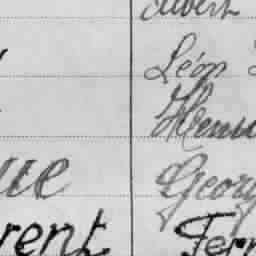 Albert
Léon
Henri
ue Georg
rent Fern